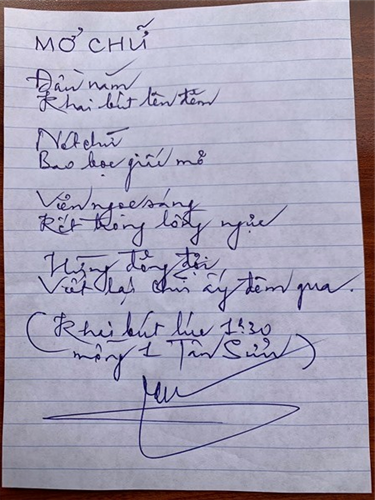 MƠ CHỮ
Đầu năm
Khai bút lên đêm
Nét chữ
Bao bọc giấc mơ
Viên ngọc sáng
Kết trong lồng ngực
Hừng đông đợi
Viết lại chữ ấy đêm qua.
(Khai bút lúc 1h30
mồng 1 Tân Sửu)